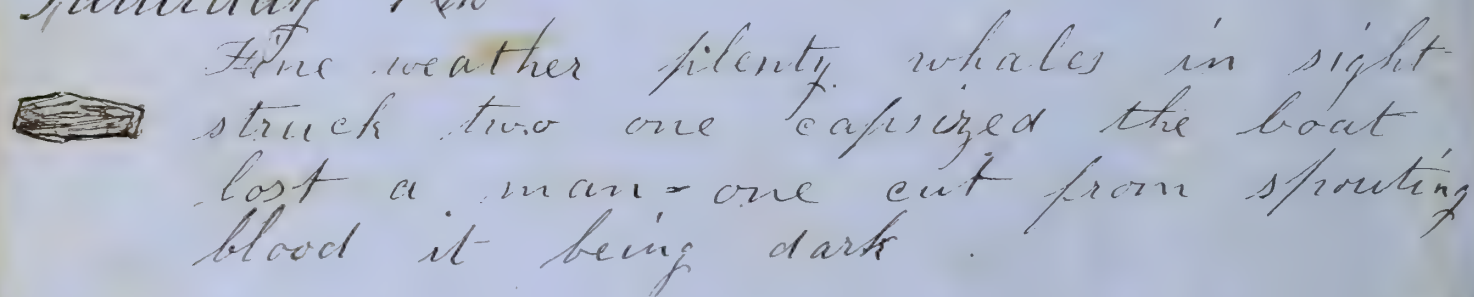 Saturday
Fine weather plenty whales in sight
struck two one capsized the boat
lost a man - one cut from spouting
blood it being dark .